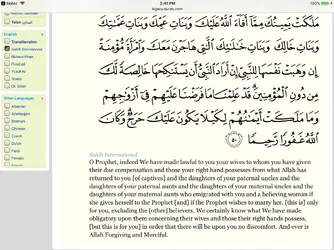 Notes
2:41 PM
legacy.quran.com
Tafsir الجلالين
English
Transliteration
Sahih International
Muhsin Khan
Pickthall
Yusuf Ali
Shakir
Dr. Ghali
Other Languages
Albanian
Azerbaijani
Bosnian
Chinese
Czech
Dutch
Farsi
Finnish
French
German
مَلَكَتْ يَمِينُكَ مِمَّآ أَفَآءَ ٱللَّهُ عَلَيْكَ وَبَنَاتِ عَمِّكَ وَبَنَاتِ عَمَّـٰتِكَ
وَبَنَاتِ خَالِكَ وَبَنَاتِ خَـٰلَـٰتِكَ ٱلَّـٰتِى هَاجَرْنَ مَعَكَ وَٱمْرَأَةً مُّؤْمِنَةً
إِن وَهَبَتْ نَفْسَهَا لِلنَّبِىِّ إِنْ أَرَادَ ٱلنَّبِىُّ أَن يَسْتَنكِحَهَا خَالِصَةً لَّكَ
مِن دُونِ ٱلْمُؤْمِنِينَ ۗ قَدْ عَلِمْنَا مَا فَرَضْنَا عَلَيْهِمْ فِىٓ أَزْوَٰجِهِمْ
وَمَا مَلَكَتْ أَيْمَـٰنُهُمْ لِكَيْلَا يَكُونَ عَلَيْكَ حَرَجٌ ۗ وَكَانَ
ٱللَّهُ غَفُورًا رَّحِيمًا ٥٠
Sahih International
O Prophet, indeed We have made lawful to you your wives to whom you have given
their due compensation and those your right hand possesses from what Allah has
returned to you [of captives] and the daughters of your paternal uncles and the
daughters of your paternal aunts and the daughters of your maternal uncles and the
daughters of your maternal aunts who emigrated with you and a believing woman if
she gives herself to the Prophet [and] if the Prophet wishes to marry her, [this is] only
for you, excluding the [other] believers. We certainly know what We have made
obligatory upon them concerning their wives and those their right hands possess,
[but this is for you] in order that there will be upon you no discomfort. And ever is
Allah Forgiving and Merciful.